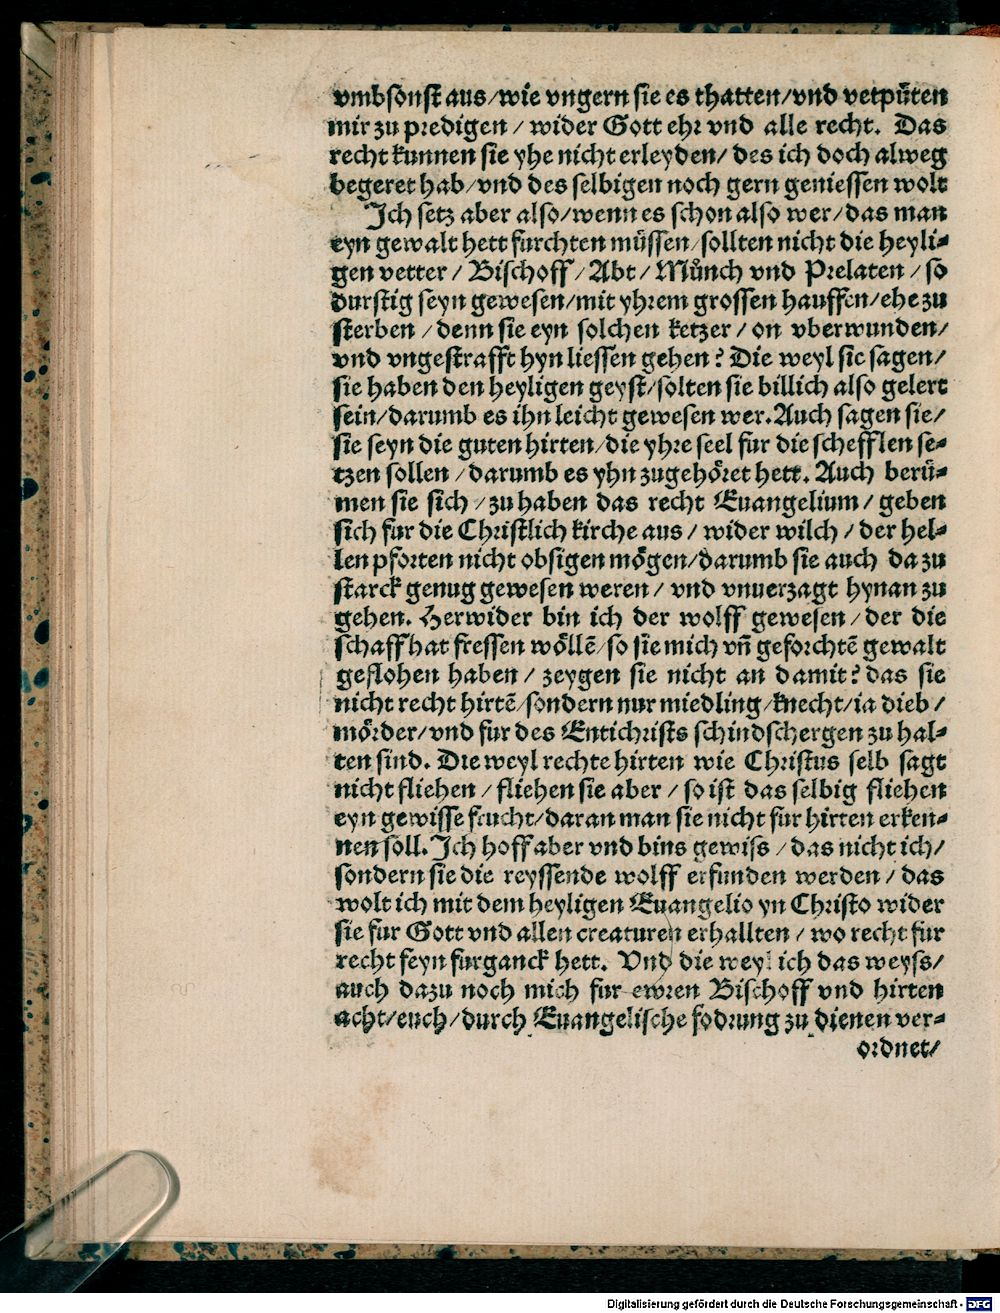 vmbsonst aus/wie vngern sie es thatten/vnd vetpüten
mir zu predigen / wider Gott ehr vnd alle recht. Das
recht kunnen sie yhe nicht erleyden/ des ich doch alweg
begeret hab/vnd des selbigen noch gern geniessen wolt
Ich setz aber also/wenn es schon also wer/das man
eyn gewalt hett furchten müssen/sollten nicht die heyli⸗
gen vetter / Bischoff / Abt / Můnch vnd Prelaten / so
durstig seyn gewesen/mit yhrem grossen hauffen/ehe zu
sterben / denn sie eyn solchen ketzer / on vberwunden/
vnd vngestrafft hyn liessen gehen? Die weyl sie sagen/
sie haben den heyligen geyst/solten sie billich also gelert
sein/darumb es ihn leicht gewesen wer. Auch sagen sie/
sie seyn die guten hirten/die yhre seel fur die schefflen se⸗
tzen sollen / darumb es yhn zugehöret hett. Auch berü⸗
men sie sich / zu haben das recht Euangelium / geben
sich fur die Christlich kirche aus / wider wilch / der hel⸗
len pforten nicht obsigen mögen/darumb sie auch da zu
starck genug gewesen weren / vnd vnuerzagt hynan zu
gehen. Herwider bin ich der wolff gewesen / der die
schaff hat fressen wöllē/so sie mich vñ geforchtē gewalt
geflohen haben / zeygen sie nicht an damit? das sie
nicht recht hirtē/sondern nur miedling/knecht/ia dieb /
mörder/vnd fur des Entichrists schindschergen zu hal⸗
ten sind. Die weyl rechte hirten wie Christus selb sagt
nicht fliehen / fliehen sie aber / so ist das selbig fliehen
eyn gewisse frucht/daran man sie nicht fur hirten erken⸗
nen soll. Ich hoff aber vnd bins gewiss / das nicht ich/
sondern sie die reyssende wolff erfunden werden / das
wolt ich mit dem heyligen Euangelio yn Christo wider
sie fur Gott vnd allen creaturen erhallten / wo recht fur
recht seyn furganck hett. Vnd die weyl ich das weyss/
auch dazu noch mich fur ewren Bischoff vnd hirten
acht/euch/durch Euangelische fodrung zu dienen ver⸗
ordnet/
Digitalisierung gefördert durch die Deutsche Forschungsgemeinschaft - DFG